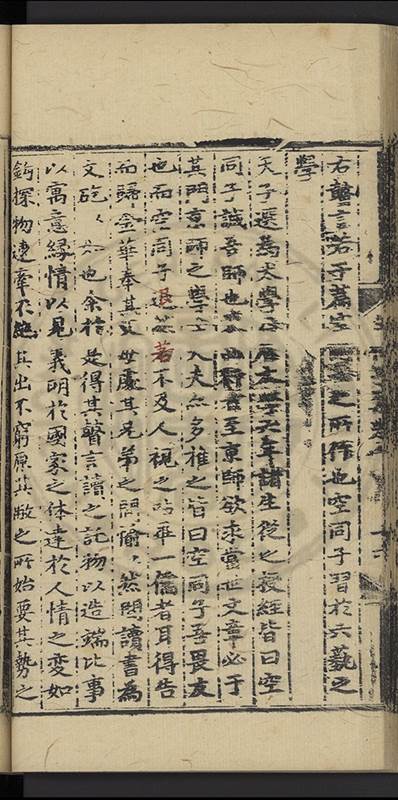 右瞽言若干篇空同子之所作也空同子習於六藝之
學
天子選為太學居太學六年諸生從之授經皆曰空
同子誠吾師也行者至京師欲求當世文章必于
其門京師之學士大夫亦多推之皆曰空同子吾畏友
也而空同子退若不及人視之一儒者耳得告
而歸金華奉其父母處其兄弟之間愉然閉讀書為
文矻矻也余於是得其瞽言讀之託物以造端比事
以寓意緣情以見義明於國家之体達於人情之變如
鉤探物連牽不絕且出不窮原其敝之所始要其勢之